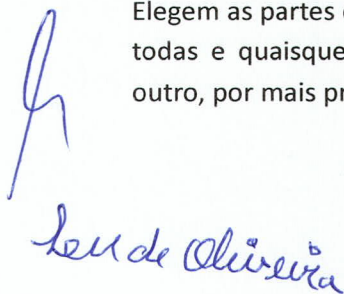 Elegem as partes
todas e quaisque
outro, por mais pr
de Oliveira